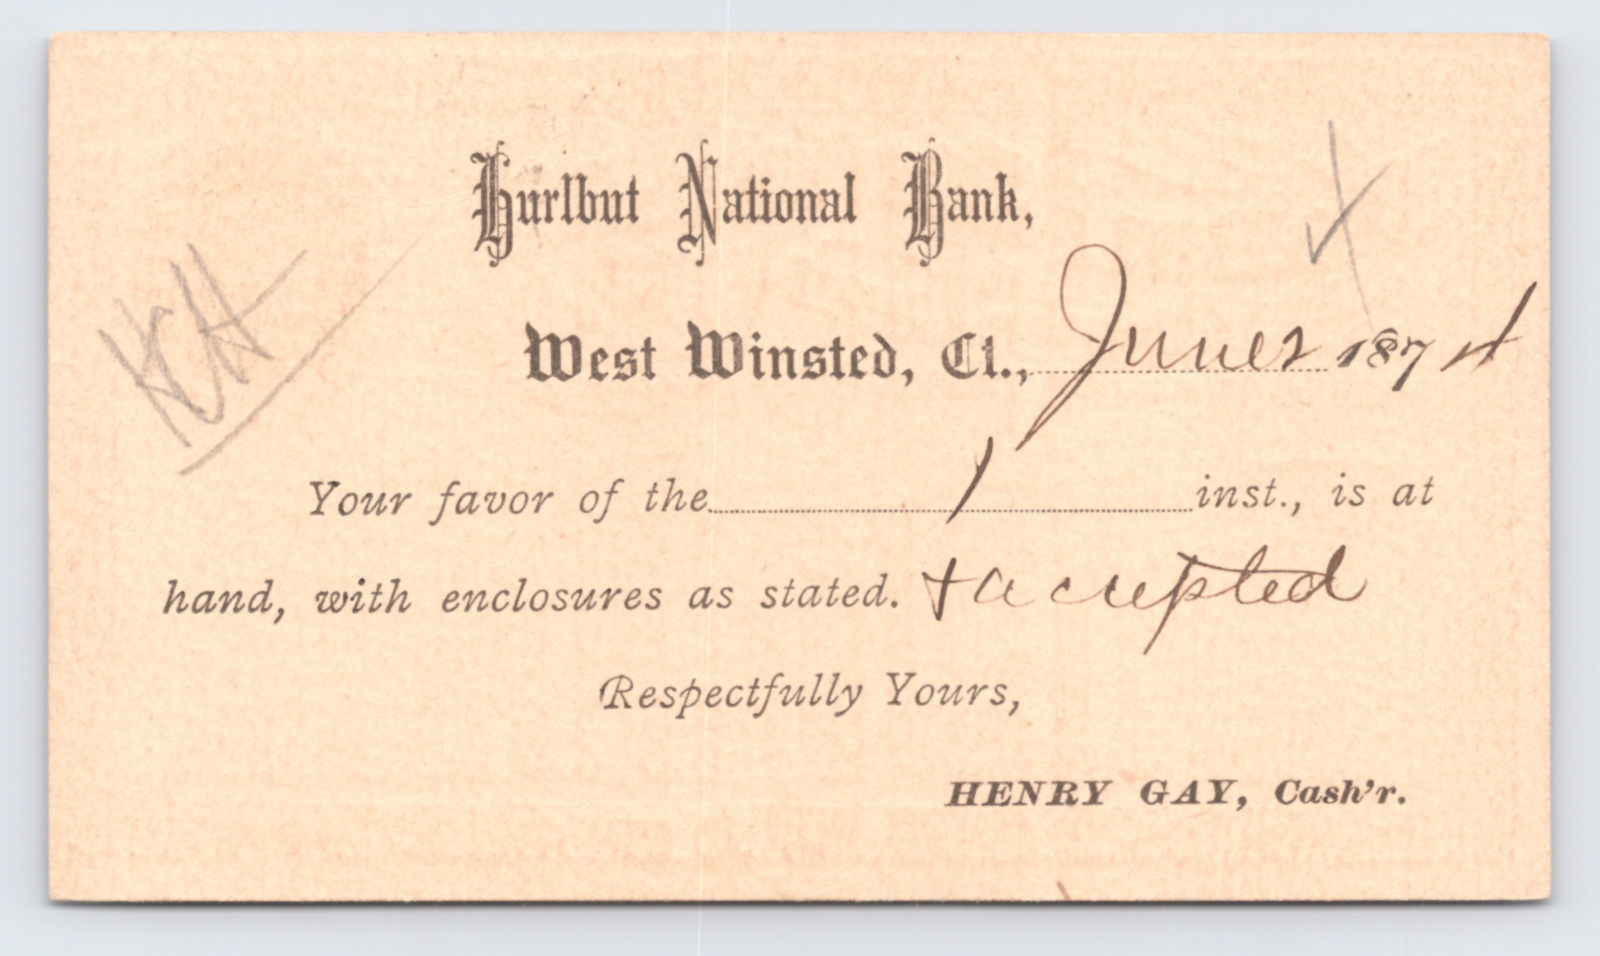 Hurlbut National Bank,
West Winsted, Ct., June 2 1874
Your favor of the 1 inst., is at
hand, with enclosures as stated. + accepted
Respectfully Yours,
HENRY GAY, Cash'r.